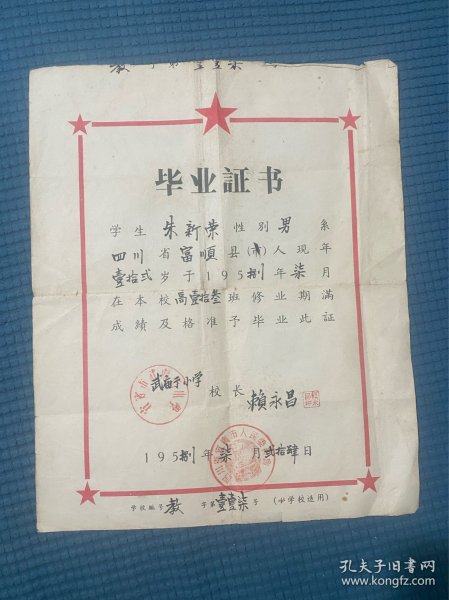 教 字第壹壹柒号
毕业証书
学生朱新荣性别男系
四川省富順县(市)人現年
壹拾弍岁于195捌年柒月
在本校高壹拾叁班修业期满
成績及格准予毕业此証
校长 賴永昌
195捌年柒月弍拾肆日
学校編号教 字第壹壹柒号 (小学校适用)
孔夫子旧书网
www.kongfz.com